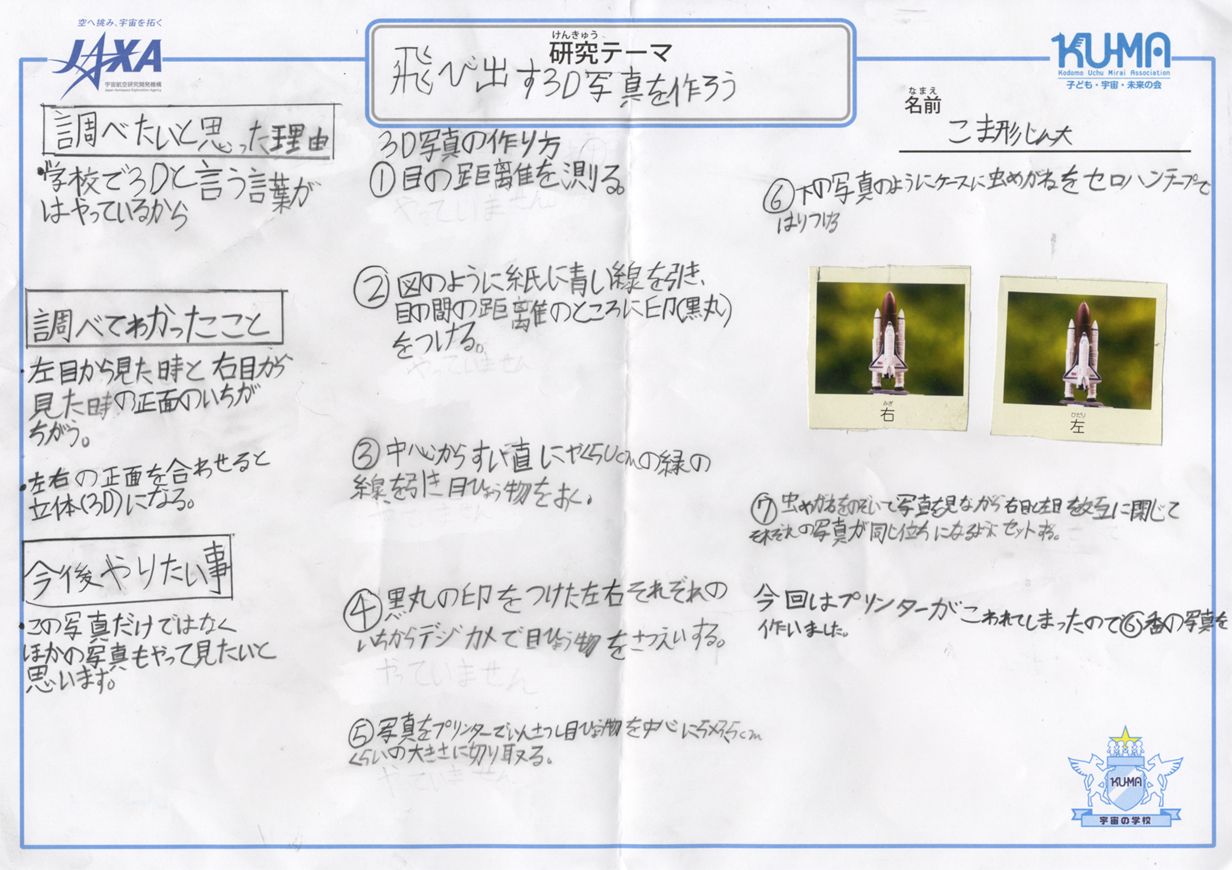 空へ挑み、宇宙を拓く
JAXA
宇宙航空研究開発機構
Japan Aerospace Exploration Agency
けんきゅう
研究テーマ
飛び出す3D写真を作ろう
KU-MA
Kodomo Uchu Mirai Association
子ども・宇宙・未来の会
なまえ
名前
調べたいと思った理由
・学校で3Dと言う言葉が
はやっているから
調べてわかったこと
・左目から見た時と右目から
見た時の正面のいちが
ちがう。
・左右の正面を合わせると
立体(3D)になる。
今後やりたい事
・この写真だけではなく
ほかの写真もやって見たいと
思います。
3D写真の作り方
①目の距離を測る。
やっていません
②図のように紙に青い線を引き、
目の間の距離のところに印(黒丸)
をつける。
やっていません
③中心からすい直に の緑の
線を引き目ひょう物をおく。
④黒丸の印をつけた左右それぞれの
いちからデジカメで目ひょう物をさつえいする。
やっていません
⑤写真をプリンターでいんさつし目ひょう物を中心に
くらいの大きさに切り取る。
やっていません
⑥下の写真のようにケースに虫めがねをセロハンテープで
はりつける
みぎ
右
ひだり
左
⑦虫めがねをのぞいて写真を見ながら右目と左目を交互に閉じて
それぞれの写真が同じ位ちになるようセットする。
今回はプリンターがこわれてしまったので⑥番の写真を
作いました。
KU-MA
宇宙の学校